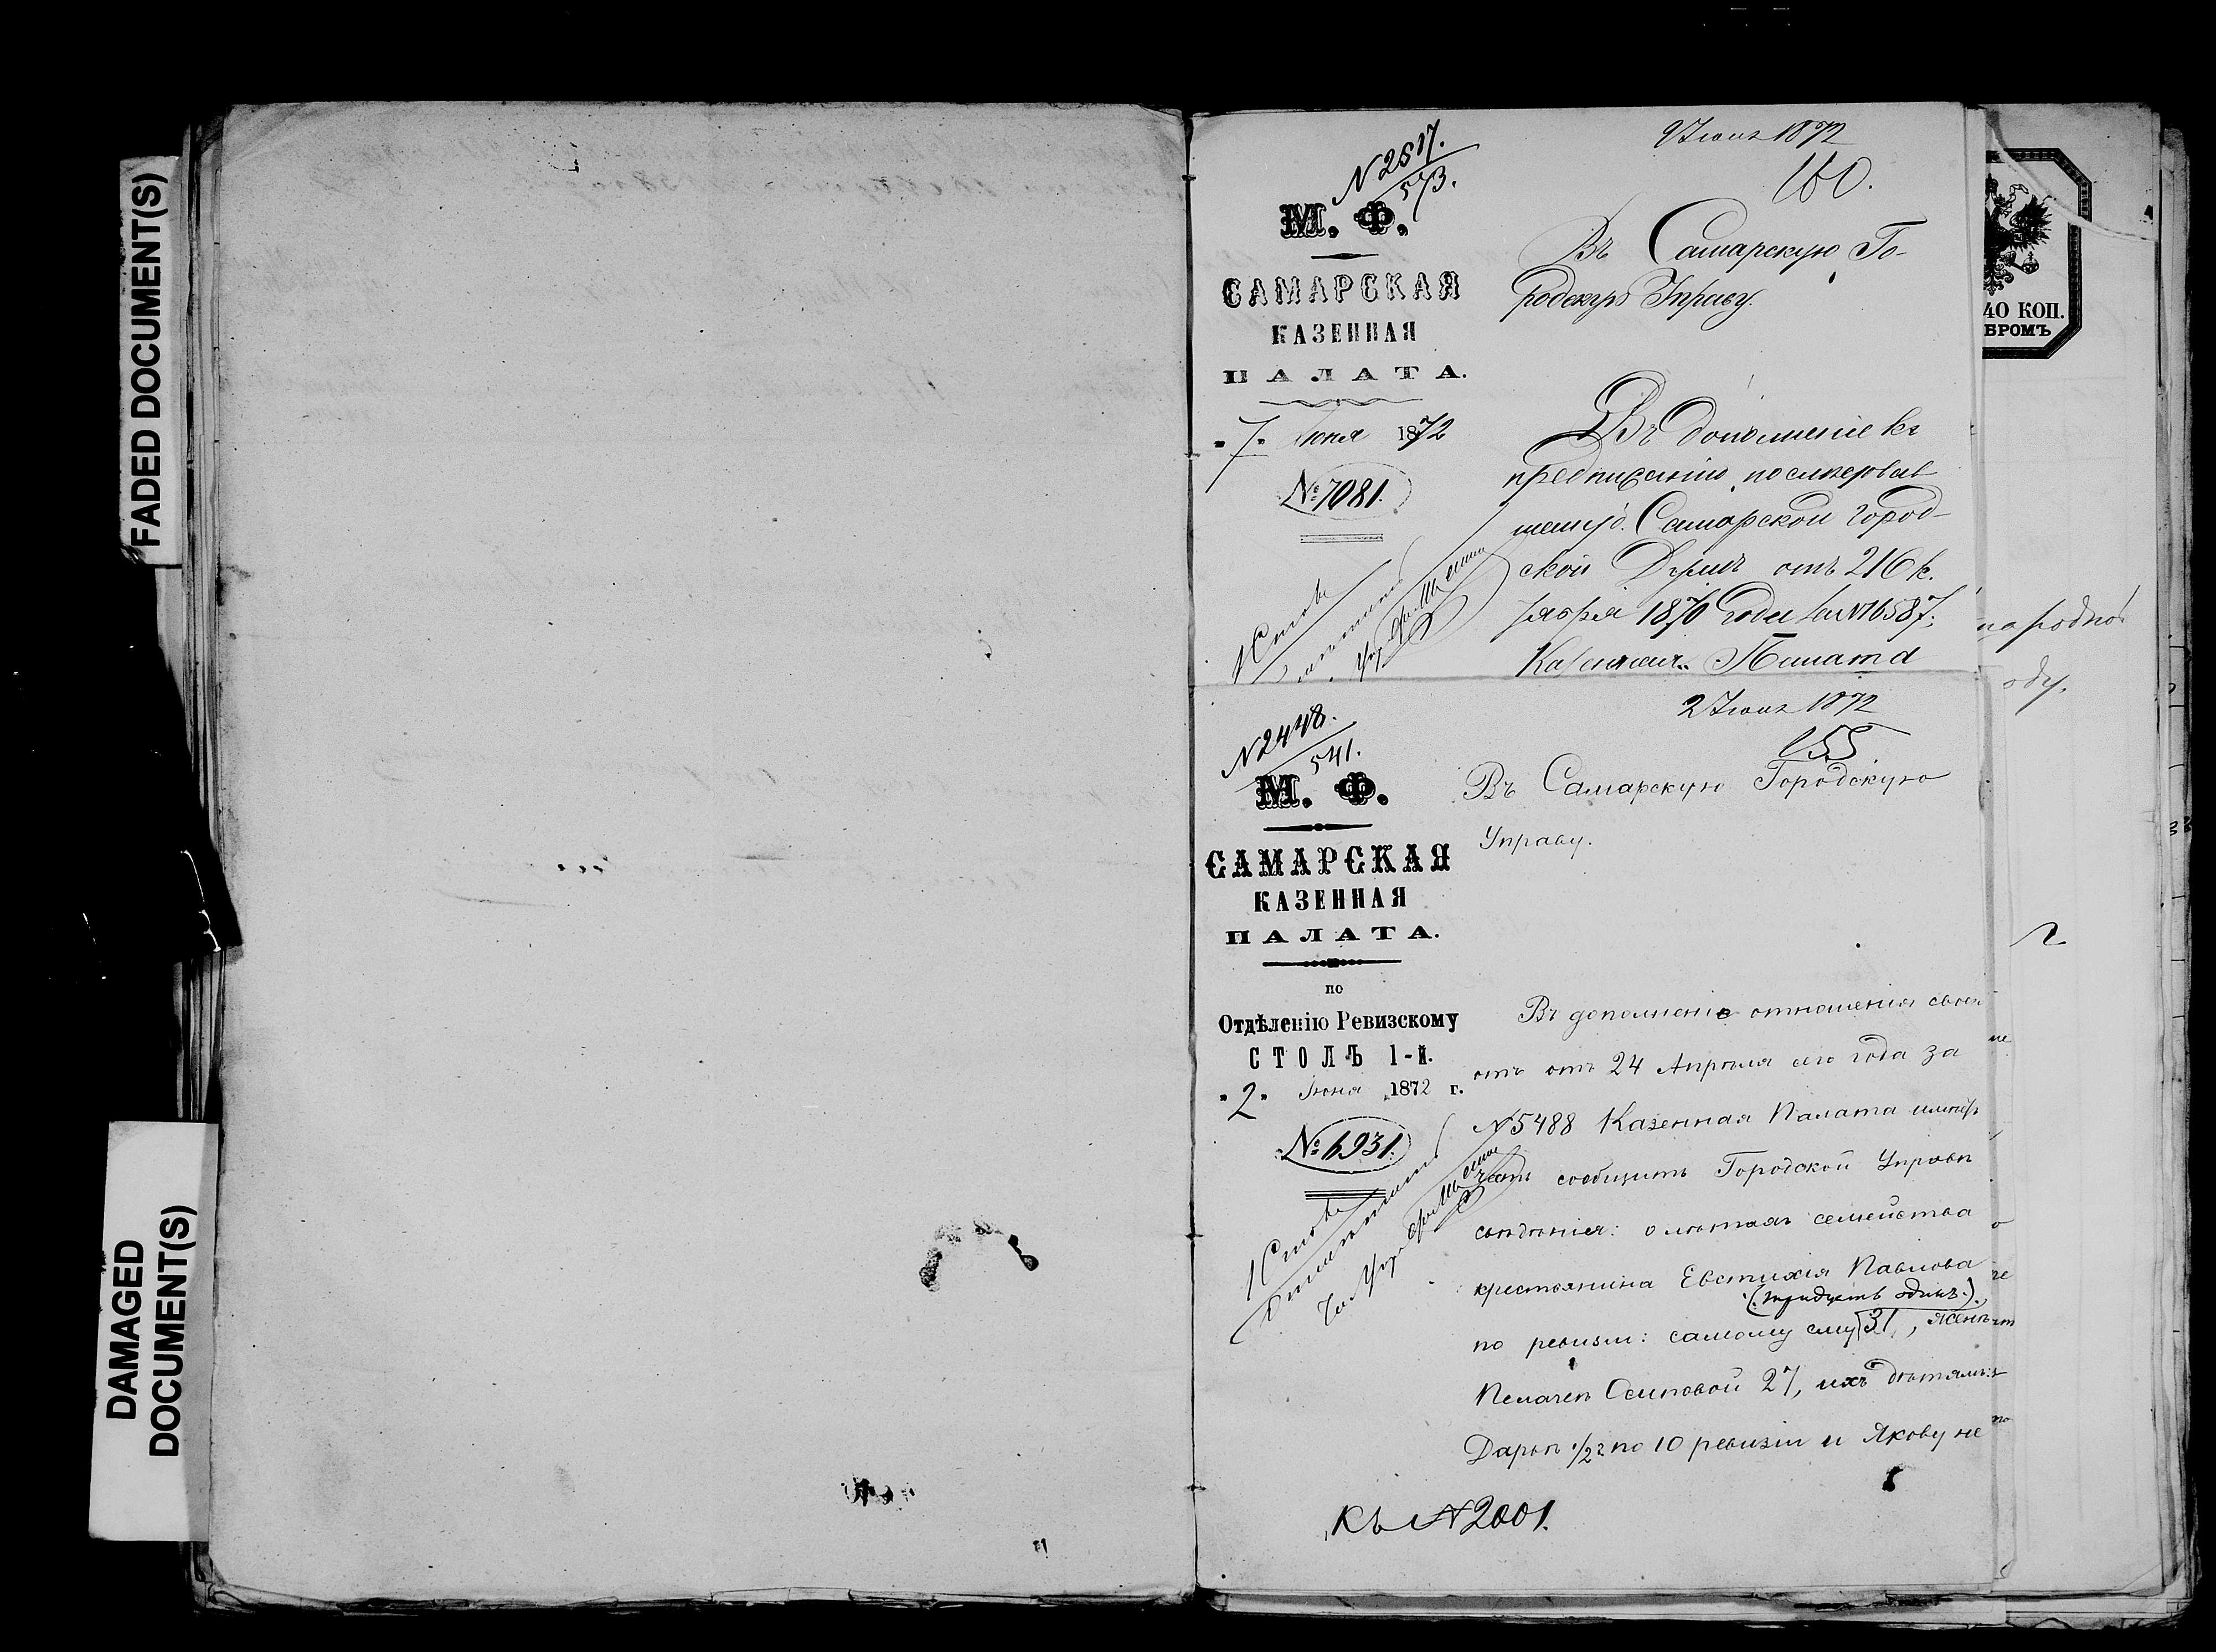 FADED DOCUMENT(S)
DAMAGED
DOCUMENT(S)
№ 2517.
573.
9 Июня 1872
160.
М. Ф.
САМАРСКАЯ
КАЗЕННАЯ
ПАЛАТА.
"7" Июня 1872
№ 7081.
Въ Самарскую Го-
родскую Управу.
Въ дополненіе къ
предписанію, последовав
шему Самарской Город-
ской Думѣ отъ 21 Ок.
тября 1870 года за № 16587,
Казенная Палата
40 КОП.
БРОМЪ
народной
оду.
№ 2448.
541.
2 Июня 1872
155
М. Ф.
САМАРСКАЯ
КАЗЕННАЯ
ПАЛАТА.
по
Отдѣленію Ревизскому
СТОЛЪ 1-й.
"2" Июня 1872 г.
№ 6931.
Въ Самарскую Городскую
Управу.
Въ дополненіе отношенія своего
отъ 24 Апрѣля сего года за
№ 5488 Казенная Палата имѣетъ
честь сообщить Городской Управѣ
свѣдѣнія: о лѣтахъ семейства
крестьянина Евстихія Павлова
(тридцать одинъ).
по ревизіи: самому ему 31, женѣ
Пелагеѣ Осиповой 27, ихъ дѣтямъ:
Дарьѣ 1/2 г по 10 ревизіи и Якову не
Къ № 2001.